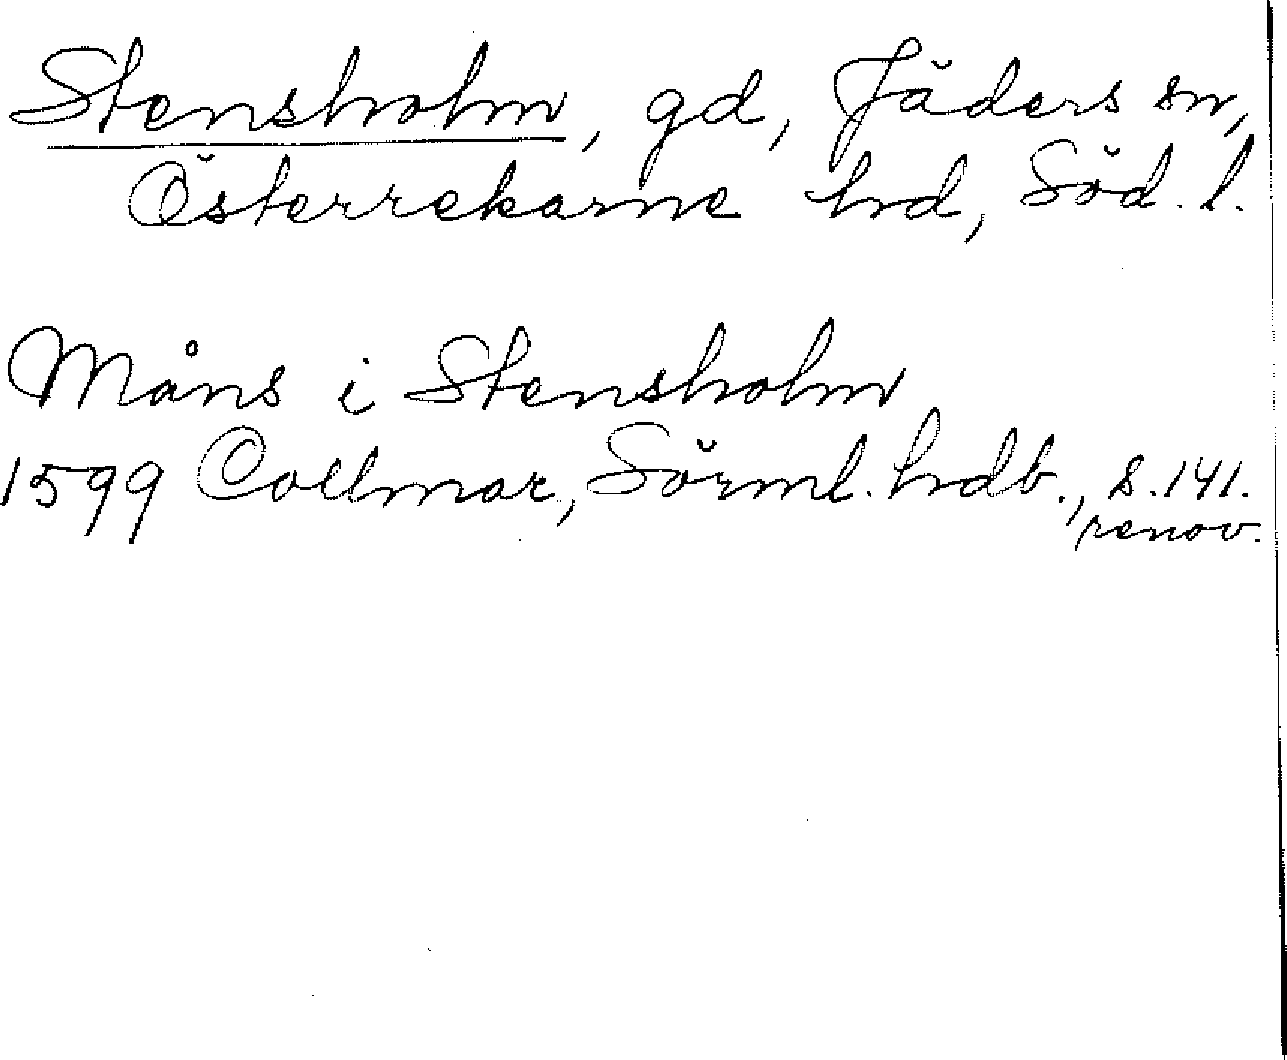 Stensholm, gd, Jäders sn,
Österrekarne hrd, Söd. l.
Måns i Stensholm
1599 Collmar, Sörml. hrdb., s. 141.
renov.